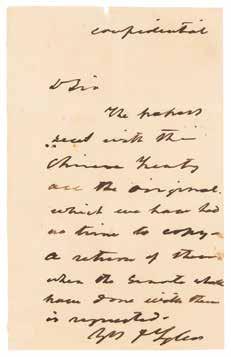 confidential
D Sir
The papers
sent with the
Chinese Treaty
are the original
which we have had
no time to copy
a return of them
when the Senate shall
have done with them
is requested.
Yrs J Tyler